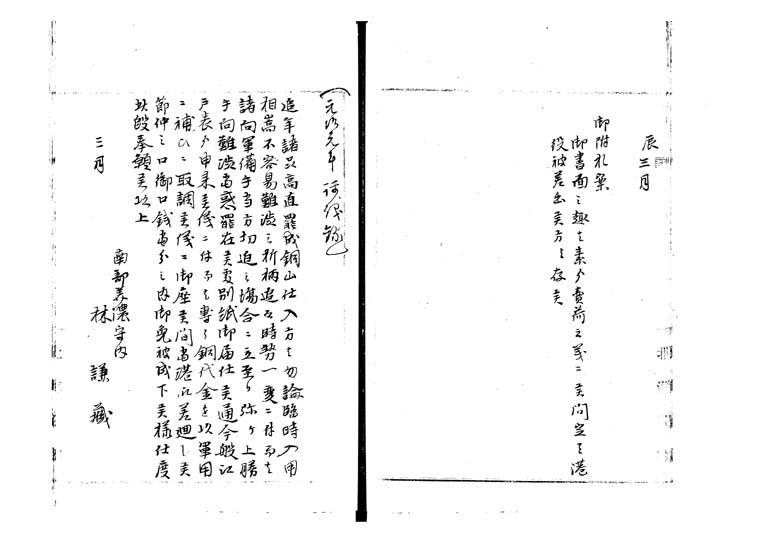 辰三月
御附札案
御書面之趣者素ゟ賣荷之義ニ候間定る港
役被差出候方と存候
(元治元年諸伺観)
追年諸品高直罷成銅山仕入方者勿論臨時入用
相嵩不容易難渋之折柄追々時勢一変ニ付而者
諸向軍備手当方切迫之場合ニ立至り弥ヶ上勝
手向難渋当惑罷在候処別紙御届仕候通今般江
戸表ゟ申来候儀ニ付而者専ら銅代金を以軍用
ニ補ひニ取調候儀ニ御座候間当港江差廻し候
節仲之口御口銭当分之内御免被成下候様仕度
此段奉願候以上
三月
南部美濃守内
林謙蔵